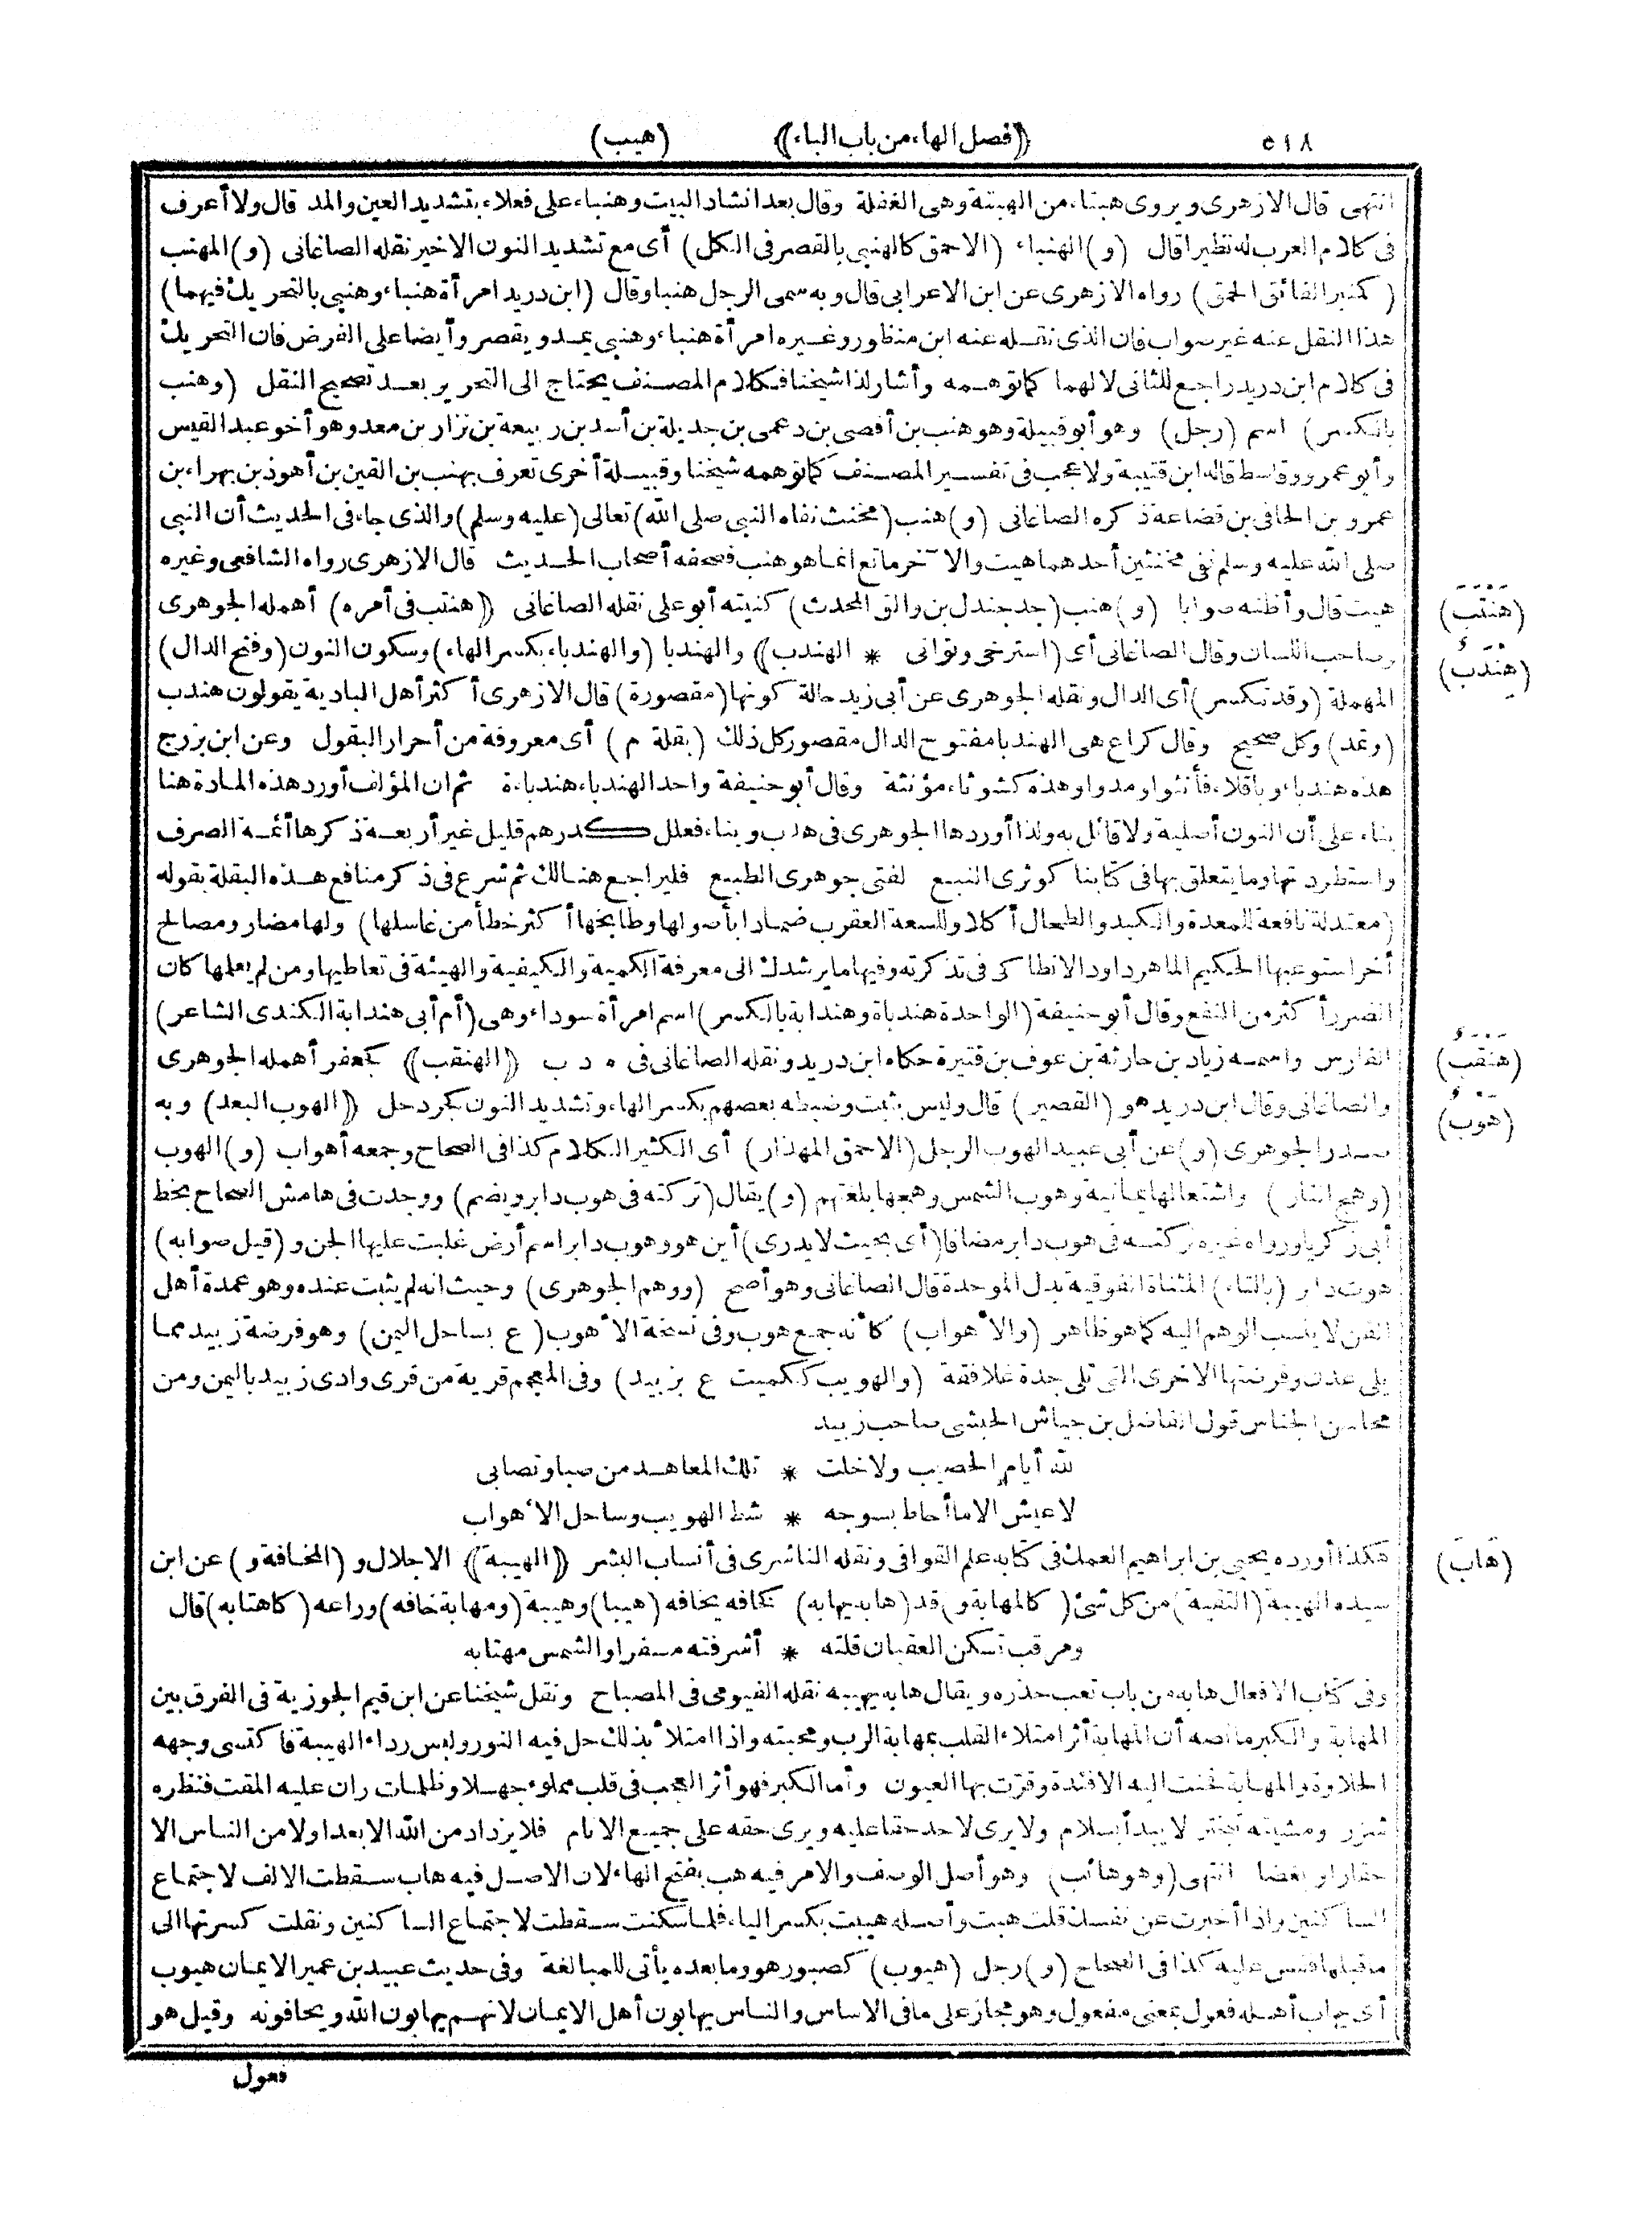 ٥١٨ ﴿فصل الهاء من باب الباء﴾ (هيب)
انتهى قال الازهرى ويروى هبتاء من الهبتة وهى الغفلة وقال بعد انشاد البيت وهنباء على فعلاء بتشديد العين والمد قال ولا أعرف
فى كلام العرب له نظيرا قال (و) الهنباء (الاحمق كالهنبى بالقصر فى الكل) أى مع تشديد النون الاخير نقله الصاغانى (و) المهنب
(كمنبر الفائق الحمق) رواه الازهرى عن ابن الاعرابى قال وبه سمى الرجل هنبا وقال (ابن دريد امرأة هنباء وهنبى بالتحريك فيهما)
هذا النقل عنه غير صواب فان الذى نقله عنه ابن منظور وغيره امرأة هنباء وهنبى يمد ويقصر وأيضا على الفرض فان التحريك
فى كلام ابن دريد راجع للثانى لا لهما كما توهمه وأشار لذا شيخنا فكلام المصنف يحتاج الى التحرير بعد تصحيح النقل (وهنب
بالكسر) اسم (رجل) وهو أبو قبيلة وهو هنب بن أفصى بن دعمى بن جديلة بن أسد بن ربيعة بن نزار بن معد وهو أخو عبد القيس
وأبو عمرو وقاسط قاله ابن قتيبة ولا عجب فى تفسير المصنف كما توهمه شيخنا وقبيلة أخرى تعرف بهنب بن القين بن أهوذ بن بهراء بن
عمرو بن الحافى بن قضاعة ذكره الصاغانى (و) هنب (مخنث نفاه النبى صلى الله) تعالى (عليه وسلم) والذى جاء فى الحديث أن النبى
صلى الله عليه وسلم نفى مخنثين أحدهما هيت والآخر ماتع انما هو هنب فصحفه أصحاب الحديث قال الازهرى رواه الشافعى وغيره
هيت قال وأظنه صوابا (و) هنب (جد جندل بن والق المحدث) كنيته أبو على نقله الصاغانى ﴿هنتب فى أمره﴾ أهمله الجوهرى
(هنتب)
وصاحب اللسان وقال الصاغانى أى (استرخى وتوانى * الهندب﴾ والهندبا (والهندباء بكسر الهاء) وسكون النون (وفتح الدال)
(هندب)
المهملة (وقد تكسر) أى الدال ونقله الجوهرى عن أبى زيد حالة كونها (مقصورة) قال الازهرى أكثر أهل البادية يقولون هندب
(وتمد) وكل صحيح وقال كراع هى الهندبا مفتوح الدال مقصور كل ذلك (بقلة م) أى معروفة من أحرار البقول وعن ابن بزرج
هذه هندباء وباقلاء فأنثوا ومدوا وهذه كشوثاء مؤنثة وقال أبو حنيفة واحد الهندباء هندباءة ثم ان المؤلف أورد هذه المادة هنا
بناء على أن النون أصلية ولا قائل به ولذا أوردها الجوهرى فى هدب وبناء فعلل كدرهم قليل غير أربعة ذكرها أئمة الصرف
واستطردتها وما يتعلق بها فى كتابنا كوثرى النبع لفتى جوهرى الطبع فليراجع هنالك ثم شرع فى ذكر منافع هذه البقلة بقوله
(معتدلة نافعة للمعدة والكبد والطحال أكلا وللسعة العقرب ضمادا بأصولها وطابخها أكثر خطأ من غاسلها) ولها مضار ومصالح
أخر استوعبها الحكيم الماهر داود الانطاكى فى تذكرته وفيها ما يرشدك الى معرفة الكمية والكيفية والهيئة فى تعاطيها ومن لم يعلمها كان
الضرر أكثر من النفع وقال أبو حنيفة (الواحدة هندباة وهندابة بالكسر) اسم امرأة سوداء وهى (أم أبى هندابة الكندى الشاعر)
الفارس واسمه زياد بن حارثة بن عوف بن قتيرة حكاه ابن دريد ونقله الصاغانى فى ه د ب ﴿الهنقب﴾ كجعفر أهمله الجوهرى
(هنقب)
والصاغانى وقال ابن دريد هو (القصير) قال وليس بثبت وضبطه بعضهم بكسر الهاء وتشديد النون كجردحل ﴿الهوب البعد) وبه
(هوب)
صدر الجوهرى (و) عن أبى عبيد الهوب الرجل (الاحمق المهذار) أى الكثير الكلام كذا فى الصحاح وجمعه أهواب (و) الهوب
(وهج النار) واشتعالها يمانية وهوب الشمس وهجها بلغتهم (و) يقال (تركته فى هوب دابر ويضم) ووجدت فى هامش الصحاح بخط
أبى زكريا ورواه غيره تركته فى هوب دابر مضافا (أى بحيث لا يدرى) أين هو وهوب دابر اسم أرض غلبت عليها الجن و (قيل صوابه)
هوت دابر (بالتاء) المثناة الفوقية بدل الموحدة قال الصاغانى وهو أصح (ووهم الجوهرى) وحيث انه لم يثبت عنده وهو عمدة أهل
الفن لا ينسب الوهم اليه كما هو ظاهر (والأهواب) كأنه جمع هوب وفى نسخة الأهوب (ع بساحل اليمن) وهو فرضة زبيد مما
يلى عدن وفرضتها الاخرى التى تلى جدة غلافقة (والهويب ككميت ع بزبيد) وفى المعجم قرية من قرى وادى زبيد باليمن ومن
محاسن الجناس قول الفاضل بن جياش الحبشى صاحب زبيد
لله أيام الحصيب ولا خلت * تلك المعاهد من صبا وتصابى
لا عيش الا ما أحاط بسوجه * شط الهويب وساحل الأهواب
هكذا أورده يحيى بن ابراهيم العمك فى كتابه علم القوافى ونقله الناشرى فى أنساب البشر ﴿الهيبة﴾ الاجلال و (المخافة و) عن ابن
(هاب)
سيده الهيبة (التقية) من كل شئ (كالمهابة و) قد (هابه يهابه) كخافه يخافه (هيبا) وهيبة (ومهابة خافه) وراعه (كاهتابه) قال
ومرقب تسكن العقبان قلته * أشرفته مسفرا والشمس مهتابه
وفى كتاب الافعال هابه من باب تعب حذره ويقال هابه يهيبه نقله الفيومى فى المصباح ونقل شيخنا عن ابن قيم الجوزية فى الفرق بين
المهابة والكبر ما نصه أن المهابة أثر امتلاء القلب بمهابة الرب ومحبته واذا امتلأ بذلك حل فيه النور ولبس رداء الهيبة فاكتسى وجهه
الحلاوة والمهابة فحنت اليه الافئدة وقرت بها العيون وأما الكبر فهو أثر العجب فى قلب مملوء جهلا وظلمات ران عليه المقت فنظره
شزر ومشيته تبختر لا يبدأ بسلام ولا يرى لاحد حقا عليه ويرى حقه على جميع الانام فلا يزداد من الله الا بعدا ولا من الناس الا
حقارا وبغضا انتهى (وهو هائب) وهو أصل الوصف والامر فيه هب بفتح الهاء لان الاصل فيه هاب سقطت الالف لاجتماع
الساكنين واذا أخبرت عن نفسك قلت هبت وأصله هيبت بكسر الياء فلما سكنت سقطت لاجتماع الساكنين ونقلت كسرتها الى
ما قبلها فقس عليه كذا فى الصحاح (و) رجل (هيوب) كصبور هو وما بعده يأتى للمبالغة وفى حديث عبيد بن عمير الايمان هيوب
أى يهاب أهله فعول بمعنى مفعول وهو مجاز على ما فى الاساس والناس يهابون أهل الايمان لانهم يهابون الله ويخافونه وقيل هو
فعول